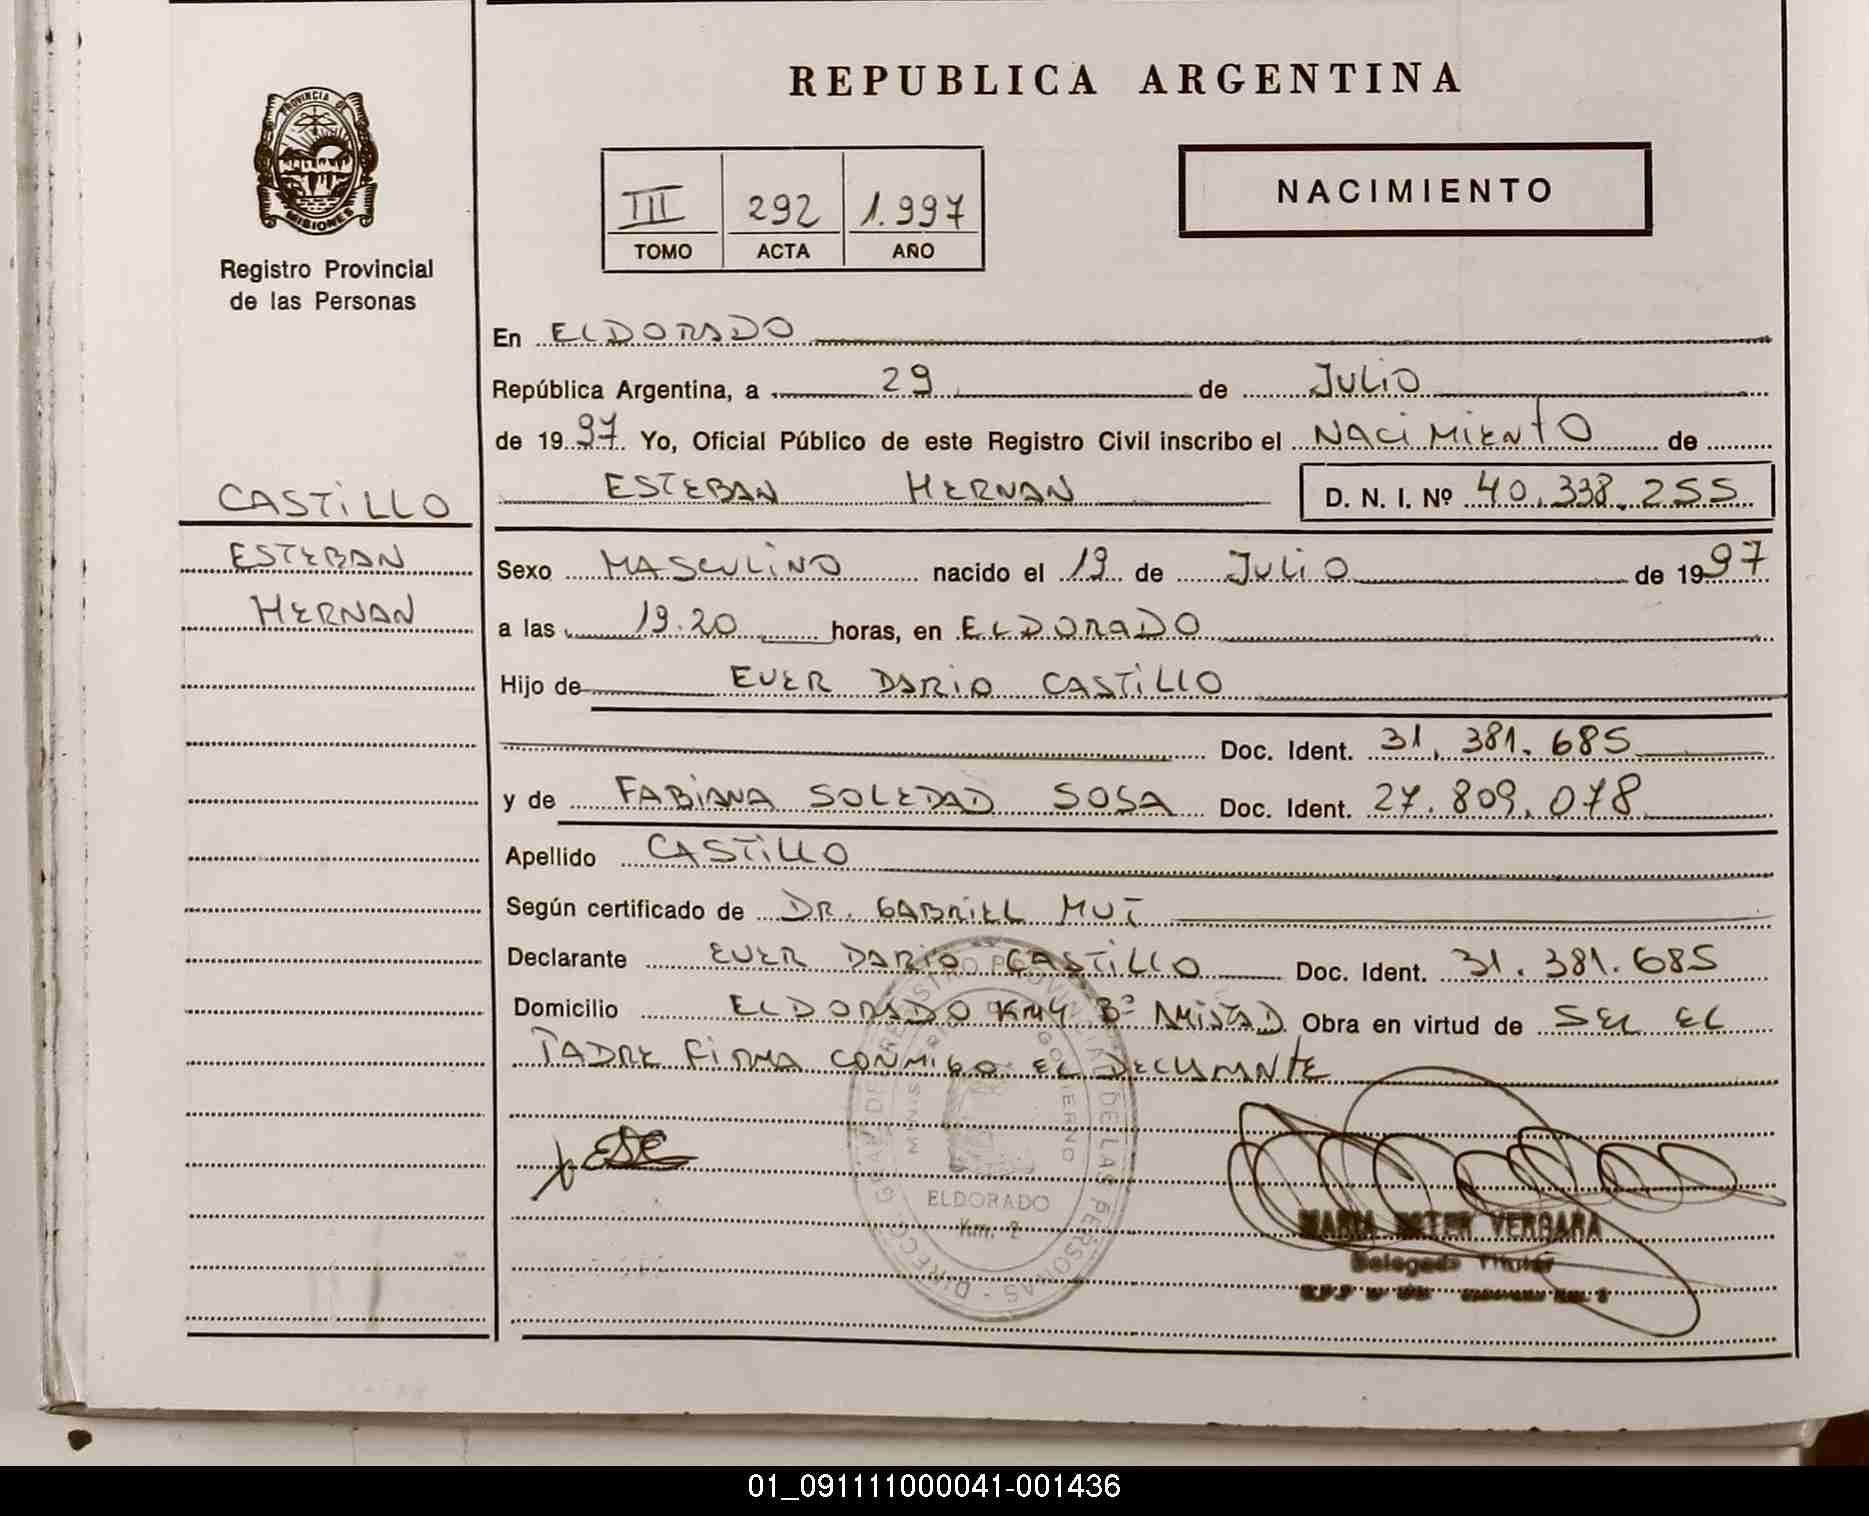 REPUBLICA ARGENTINA
PROVINCIA DE
MISIONES
Registro Provincial
de las Personas
III 292 1.997
TOMO ACTA AÑO
NACIMIENTO
En ELDORADO
República Argentina, a 29 de JULIO
de 1997 Yo, Oficial Público de este Registro Civil inscribo el NACIMIENTO de
ESTEBAN HERNAN D. N. I. Nº 40.338.255
CASTILLO
ESTEBAN
HERNAN
Sexo MASCULINO nacido el 19 de JULIO de 1997
a las 19.20 horas, en ELDORADO
Hijo de EVER DARIO CASTILLO
Doc. Ident. 31.381.685
y de FABIANA SOLEDAD SOSA Doc. Ident. 27.809.078
Apellido CASTILLO
Según certificado de DR. GABRIEL MUT
Declarante EVER DARIO CASTILLO Doc. Ident. 31.381.685
Domicilio ELDORADO KM4 Bº AMISTAD Obra en virtud de SER EL
PADRE FIRMA CONMIGO EL DECLARANTE
GOBIERNO
DE LAS PERSONAS
ELDORADO
Km. 2
MARIA ESTER VERGARA
Delegada Titular
01_091111000041-001436